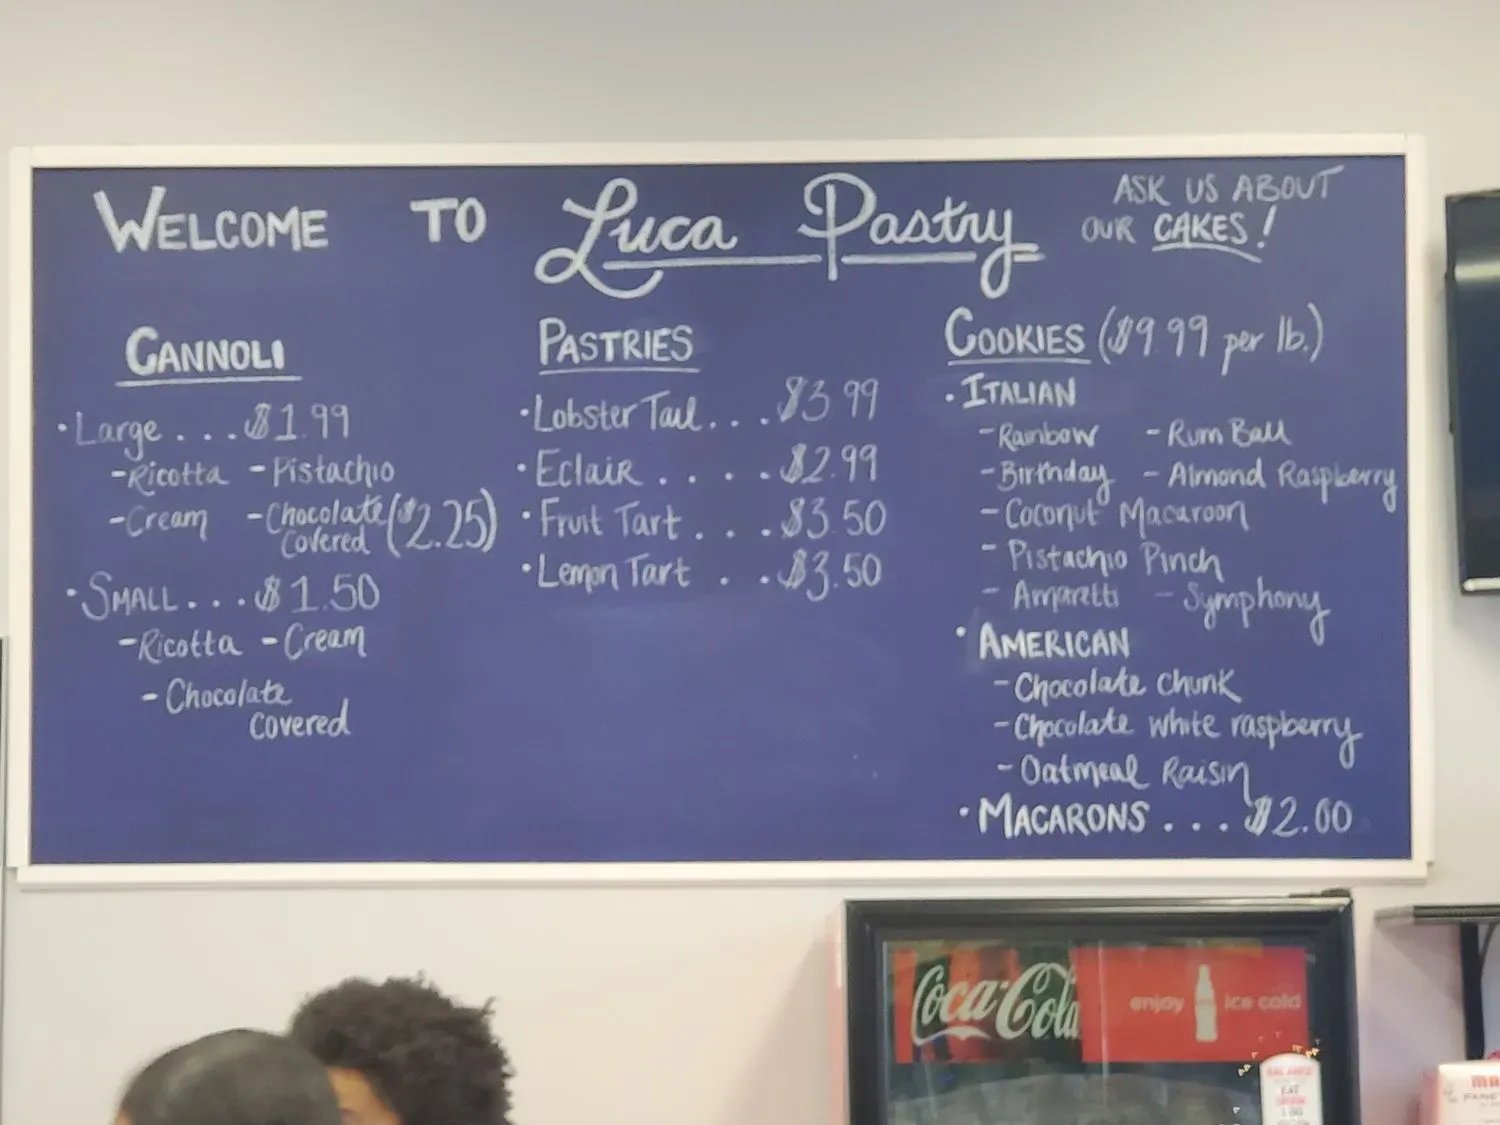 WELCOME TO Luca Pastry
ASK US ABOUT
OUR CAKES!
CANNOLI
• Large . . . $1.99
- Ricotta - Pistachio
- Cream - Chocolate covered ($2.25)
• SMALL . . . $1.50
- Ricotta - Cream
- Chocolate
covered
PASTRIES
• Lobster Tail . . . $3.99
• Eclair . . . . $2.99
• Fruit Tart . . . $3.50
• Lemon Tart . . $3.50
COOKIES ($9.99 per lb.)
• ITALIAN
- Rainbow - Rum Ball
- Birthday - Almond Raspberry
- Coconut Macaroon
- Pistachio Pinch
- Amaretti - Symphony
• AMERICAN
- Chocolate Chunk
- Chocolate white raspberry
- Oatmeal Raisin
• MACARONS . . . $2.00
Coca-Cola
enjoy ice cold
EAT